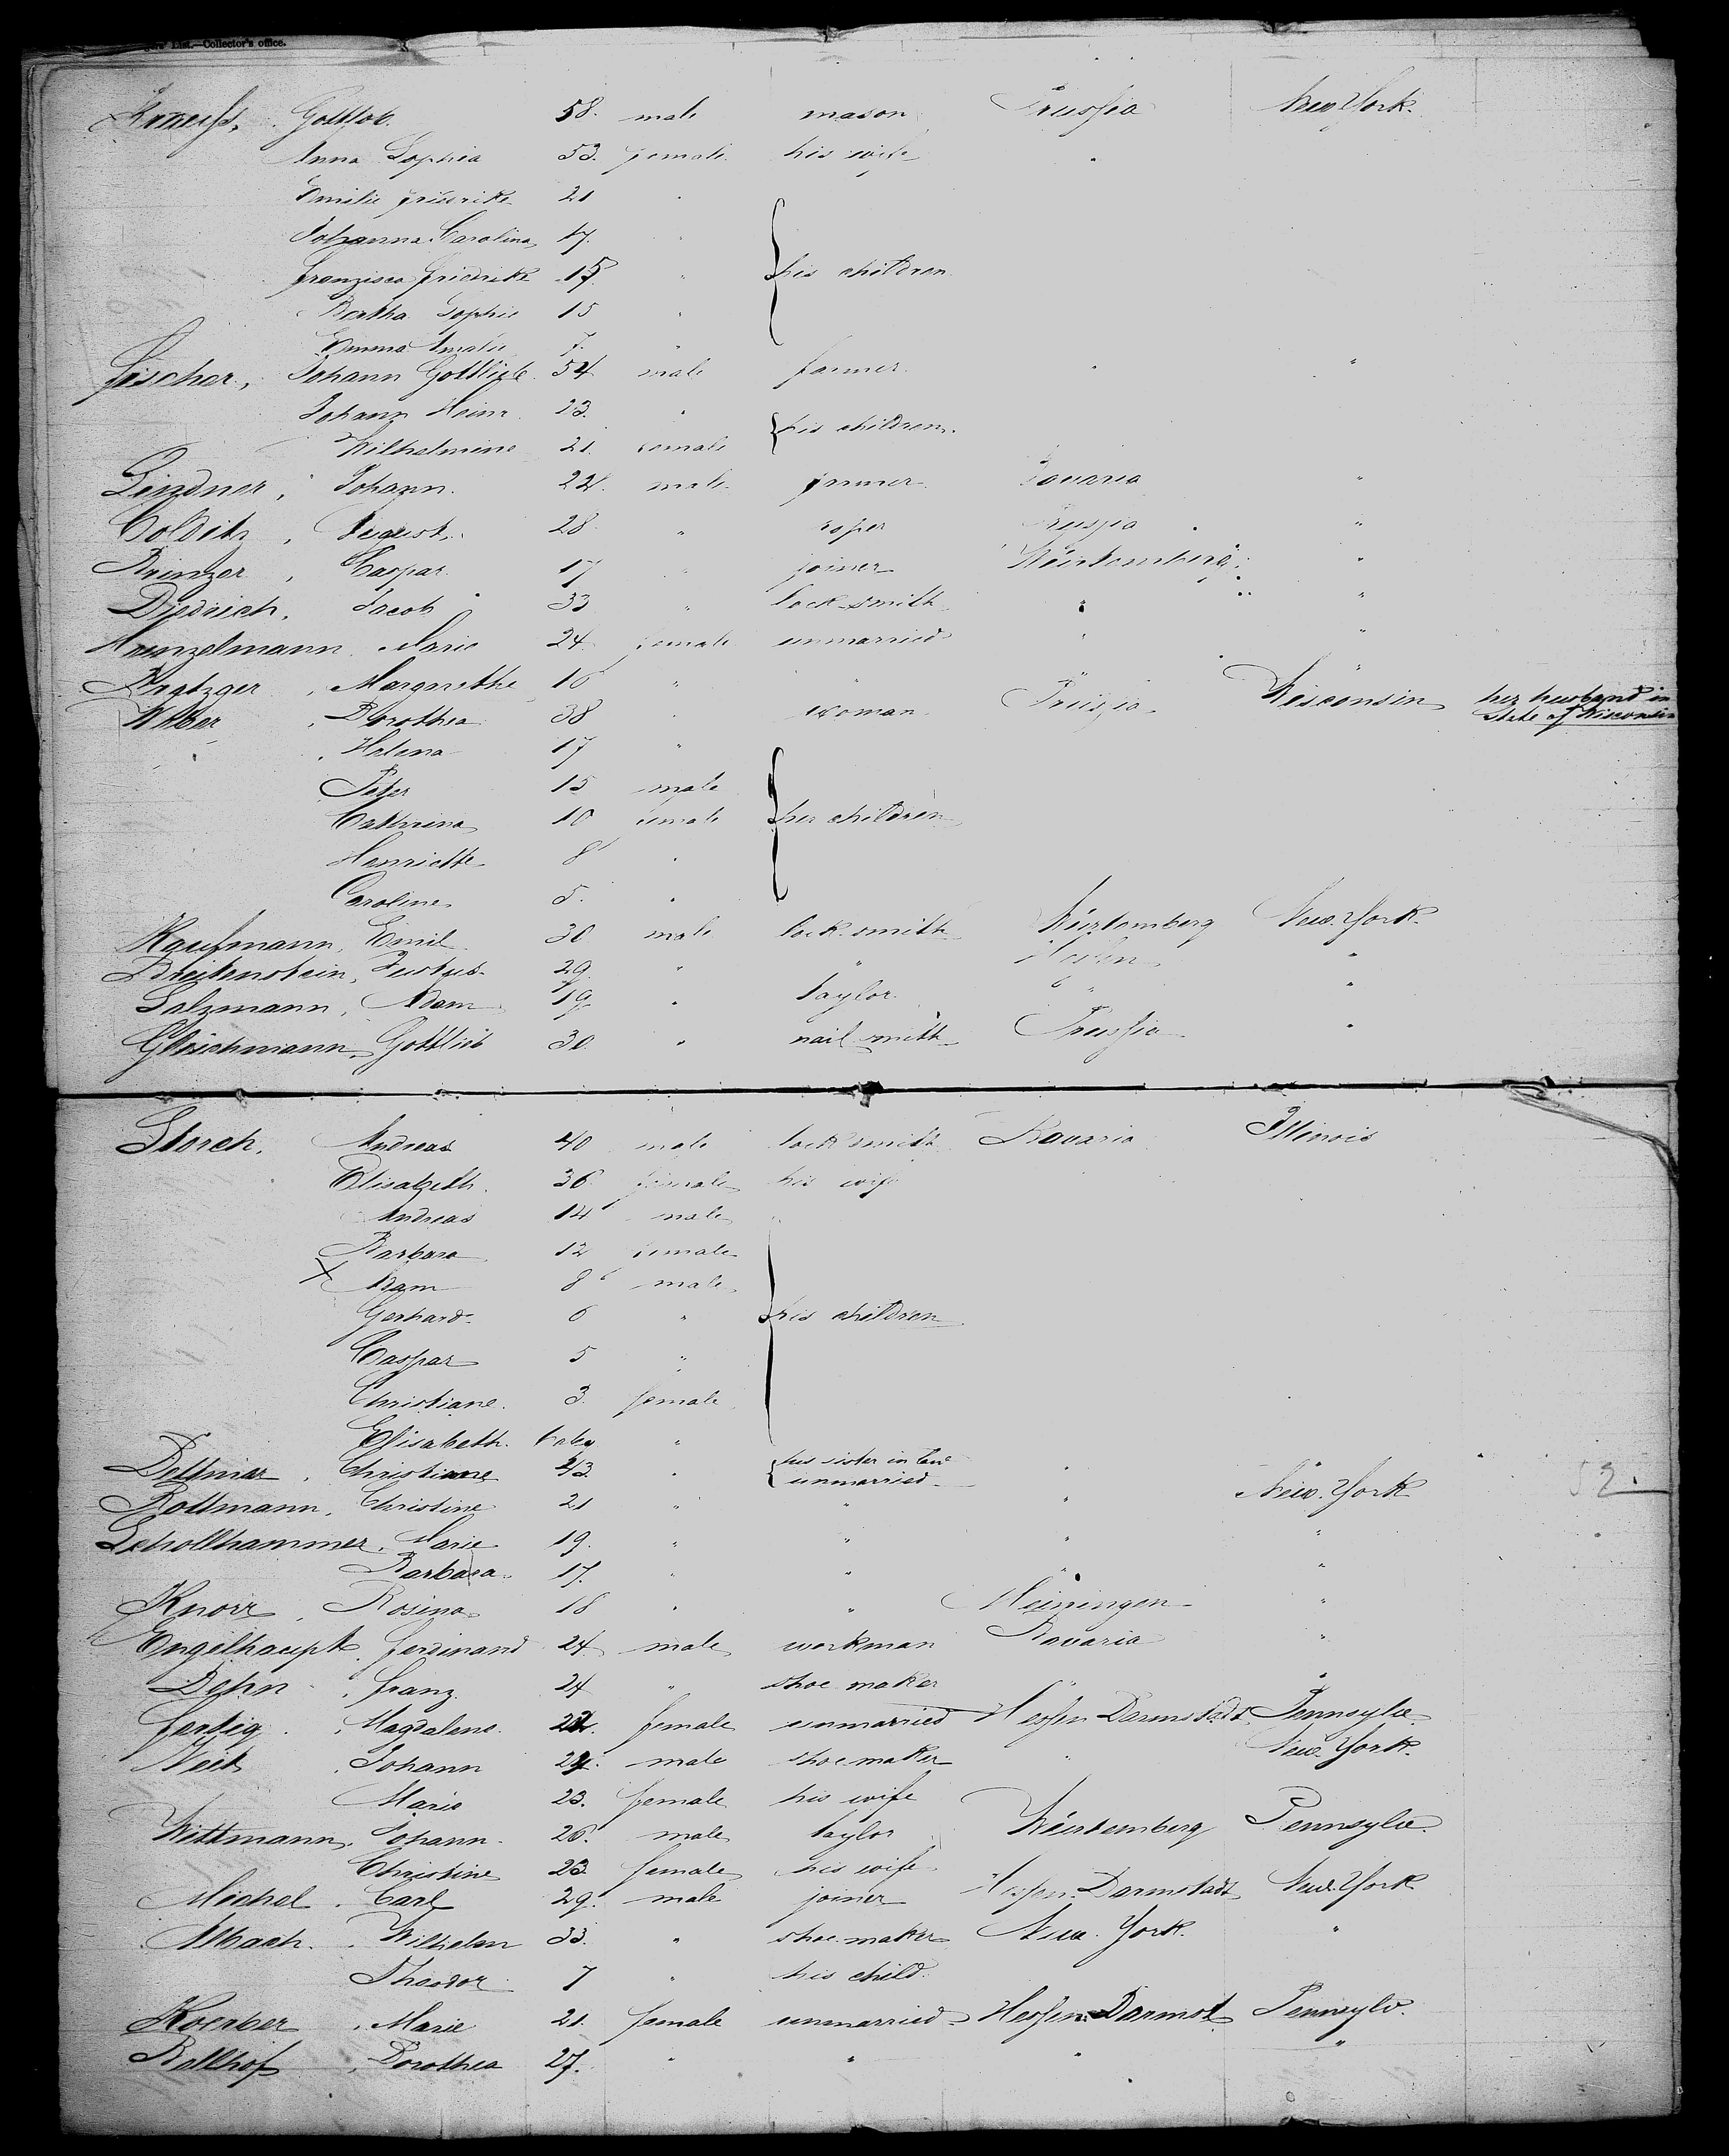 List.—Collector's office.
Kneuss, Gottlob. 58. male mason Prussia New York.
Anna Sophia 53. female his wife "
Emilie Friedrike 21 "
Johanna Carolina 17. "
Franzisca Friedrike 15 " his children
Bertha Sophie 15 "
Emma Amalie 7. "
Fischer, Johann Gottlieb 54 male farmer " "
Johann Heinr. 23. "
his children.
Wilhelmine 21. female
Lindner, Johann. 24. male farmer Bavaria "
Colditz, August. 28 " roper Prussia "
Brinzer, Caspar 17 " joiner Würtemberg "
Diedrich, Jacob 33 " lock smith " "
Haenzelmann Marie 24 female unmarried " "
Kratzger, Margarethe 16 " " "
Weber, Dorothea 38 " woman Prussia Wisconsin her husband in
State of Wisconsin
Helena 17 "
Peter 15 male
Cathrina 10 female her children
Henriette 8 "
Caroline 5. "
Kaufmann, Emil 30 male lock smith Würtemberg New York.
Breitenstein, Justus 29. " " Hessen "
Salzmann, Adam 19 " taylor " "
Gleichmann, Gottlieb 30. " nail smith Prussia "
Storch, Andreas 40 male lock smith Bavaria Illinois
Elisabeth. 36 female his wife
Andreas 14 male
Barbara 12 female
X Adam 8 male
Gerhard 6 " his children
Caspar 5 "
Christiane. 3. female
Elisabeth. baby "
Dettmar, Christiane 43. " his sister in law "
unmarried
Rottmann, Christine 21 " " " New York 52.
Schollhammer, Marie 19. " " " "
Barbara 17. " " " "
Knorr, Rosina 18 " " Meiningen "
Engelhaupt, Ferdinand 24. male workman Bavaria "
Dehn, Franz. 24 " shoe maker "
Fertig, Magdalene. 22. female unmarried Hessen Darmstadt Pennsylv.
Veit, Johann 24. male shoemaker " New York.
Marie 23. female his wife
Wittmann, Johann 26. male taylor Würtemberg Pennsylv.
Christine 23 female his wife
Michel, Carl 29. male joiner Hessen Darmstadt New York
Albach, Wilhelm 33. " shoe maker New York. "
Theodor 7 " his child.
Koerber, Marie 21. female unmarried Hessen Darmst. Pennsylv.
Ballhof, Dorothea 27. " " " "